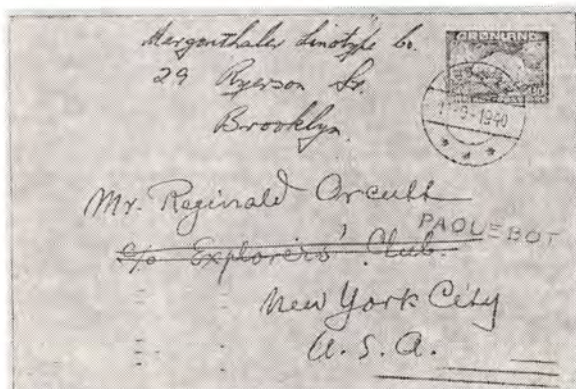 Mergenthaler Linotype Co.
29 Ryerson St.
Brooklyn.
GRØNLAND
-9-1940
Mr. Reginald Orcutt
PAQUEBOT
c/o Explorers' Club.
New York City
U. S. A.